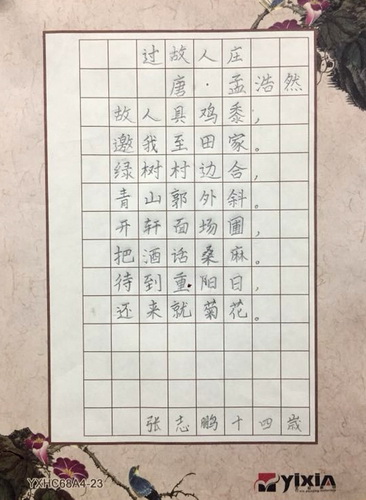 过故人庄
唐·孟浩然
故人具鸡黍,
邀我至田家。
绿树村边合,
青山郭外斜。
开轩面场圃,
把酒话桑麻。
待到重阳日,
还来就菊花。
张志鹏十四岁
YXHC68A4-23
yixin